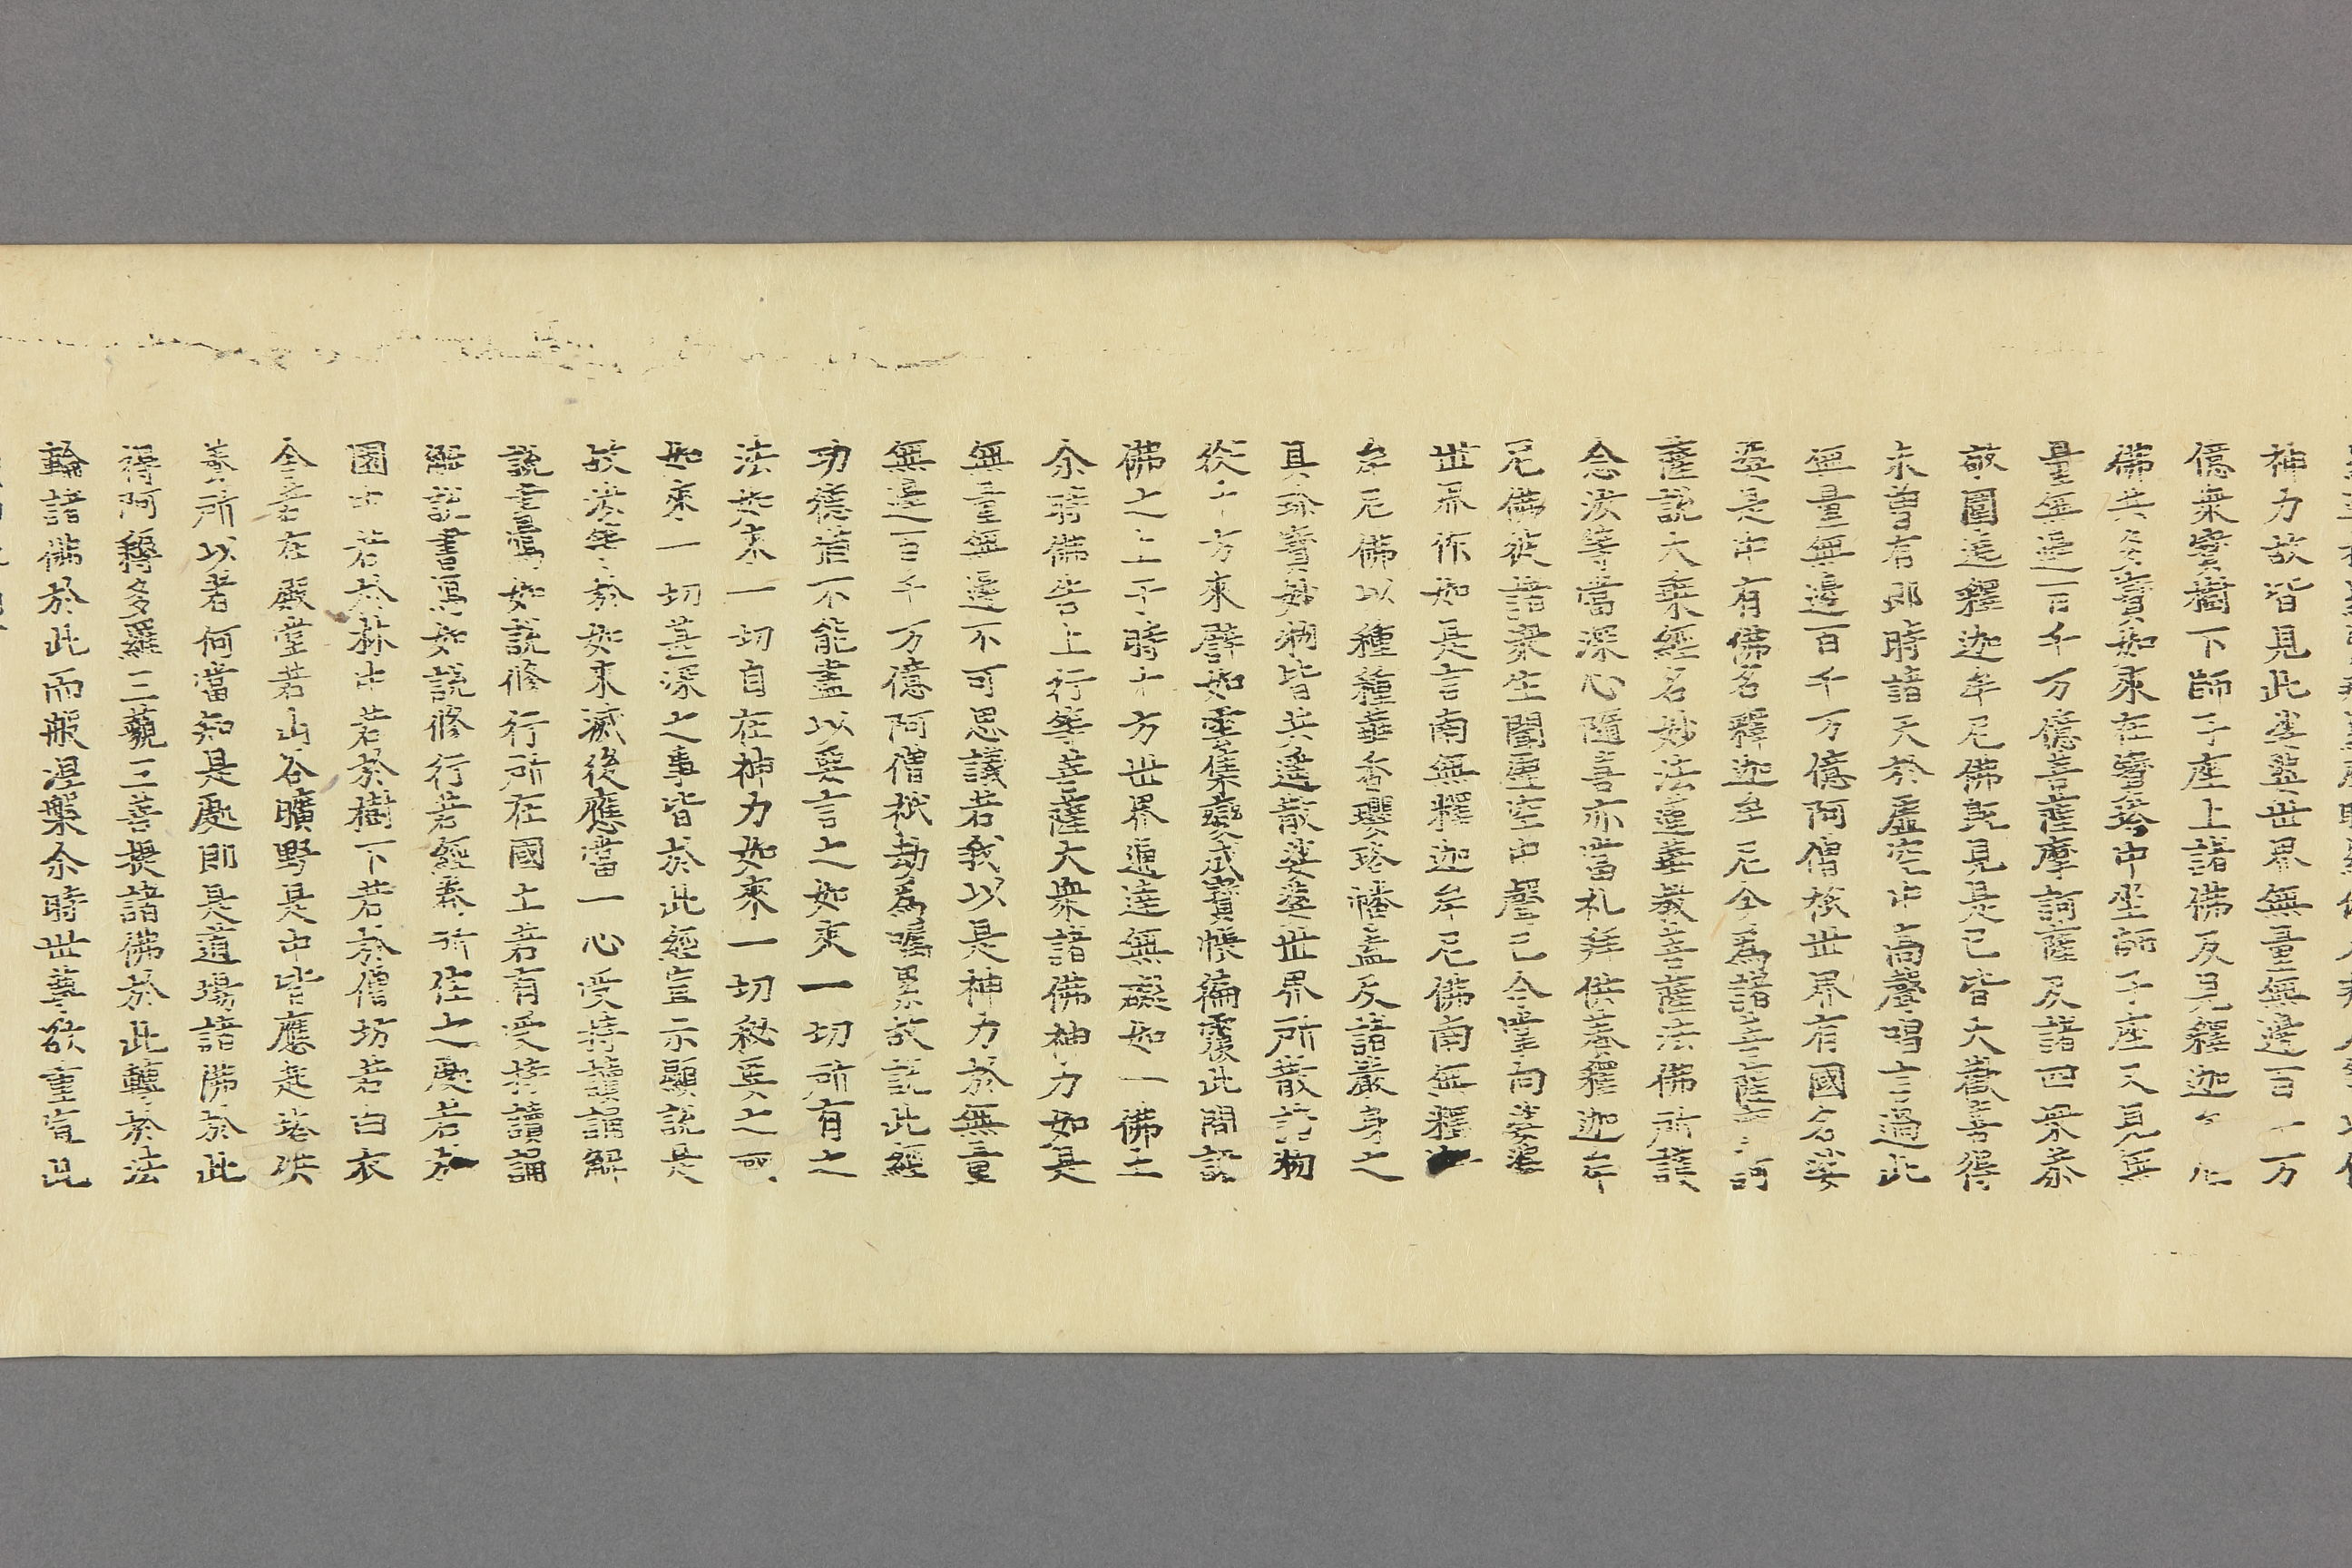 神力故皆見此娑婆世界無量無邊百千万
億衆寶樹下師子座上諸佛及見釋迦牟尼
佛共多寶如來在寶塔中坐師子座又見無
量無邊百千万億菩薩摩訶薩及諸四衆恭
敬圍遶釋迦牟尼佛既見是已皆大歡喜得
未曾有即時諸天於虛空中高聲唱言過此
無量無邊百千万億阿僧祇世界有國名娑
婆是中有佛名釋迦牟尼今爲諸菩薩摩訶
薩說大乘經名妙法蓮華教菩薩法佛所護
念汝等當深心隨喜亦當礼拜供養釋迦牟
尼佛彼諸衆生聞虛空中聲已合掌向娑婆
世界作如是言南無釋迦牟尼佛南無釋迦
牟尼佛以種種華香瓔珞幡盖及諸嚴身之
具珎寶妙物皆共遥散娑婆世界所散諸物
從十方來譬如雲集變成寶帳徧覆此間諸
佛之上于時十方世界通達無礙如一佛土
尒時佛告上行等菩薩大衆諸佛神力如是
無量無邊不可思議若我以是神力於無量
無邊百千万億阿僧祇劫爲囑累故說此經
功德猶不能盡以要言之如來一切所有之
法如來一切自在神力如來一切秘要之藏
如來一切甚深之事皆於此經宣示顯說是
故汝等於如來滅後應當一心受持讀誦解
說書寫如說修行所在國土若有受持讀誦
解說書寫如說修行若經卷所住之處若於
園中若於林中若於樹下若於僧坊若白衣
舍若在殿堂若山谷曠野是中皆應起塔供
養所以者何當知是處即是道場諸佛於此
得阿耨多羅三藐三菩提諸佛於此轉於法
輪諸佛於此而般涅槃尒時世尊欲重宣此